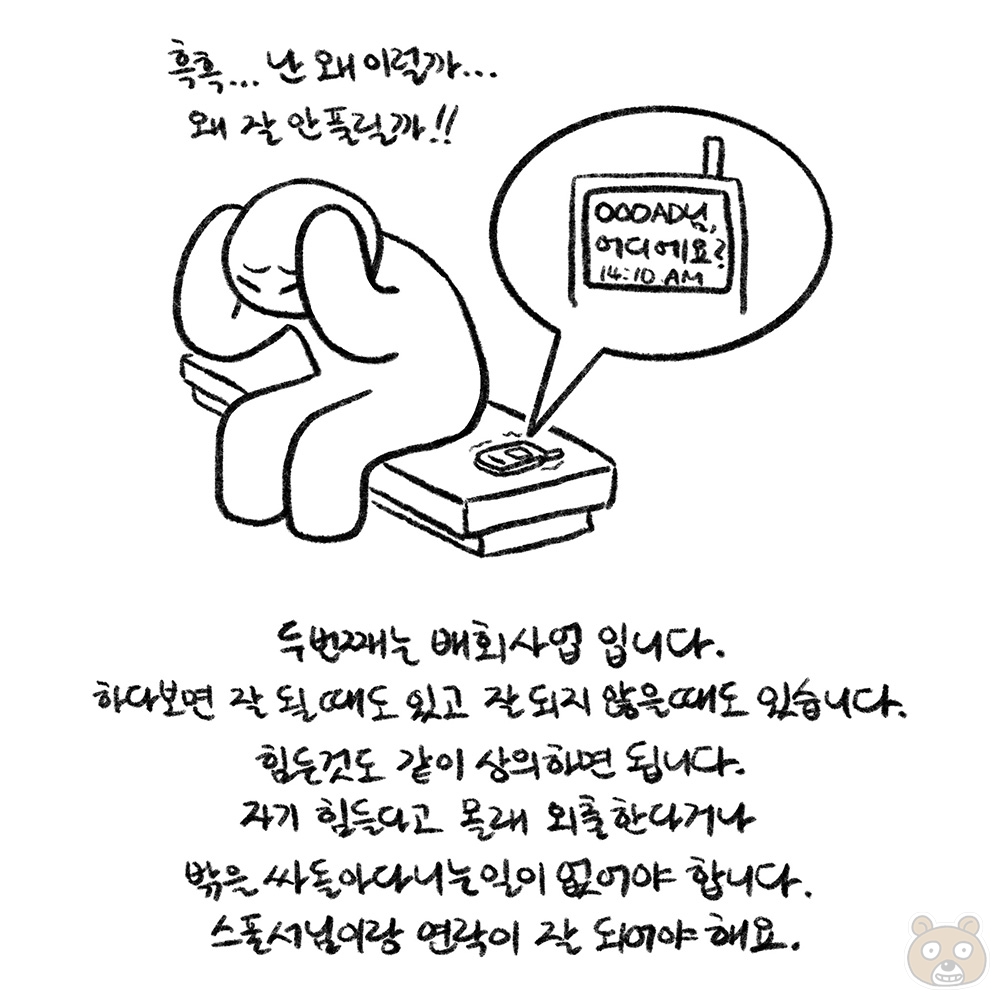 흑흑... 난 왜 이럴까...
왜 잘 안풀릴까!!
OOOAD님,
어디에요?
14:10 AM
두번째는 배회사업 입니다.
하다보면 잘 될때도 있고 잘 되지 않을때도 있습니다.
힘든것도 같이 상의하면 됩니다.
자기 힘들다고 몰래 외출한다거나
밖을 싸돌아다니는일이 없어야 합니다.
스폰서님이랑 연락이 잘 되어야 해요.